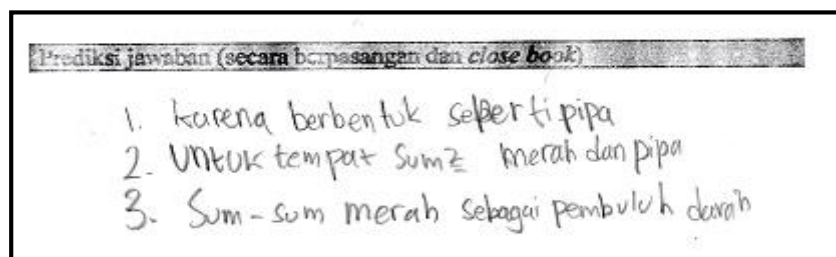 Prediksi jawaban (secara berpasangan dan close book)
1. karena berbentuk seperti pipa
2. Untuk tempat Sum2 merah dan pipa
3. Sum-sum merah sebagai pembuluh darah